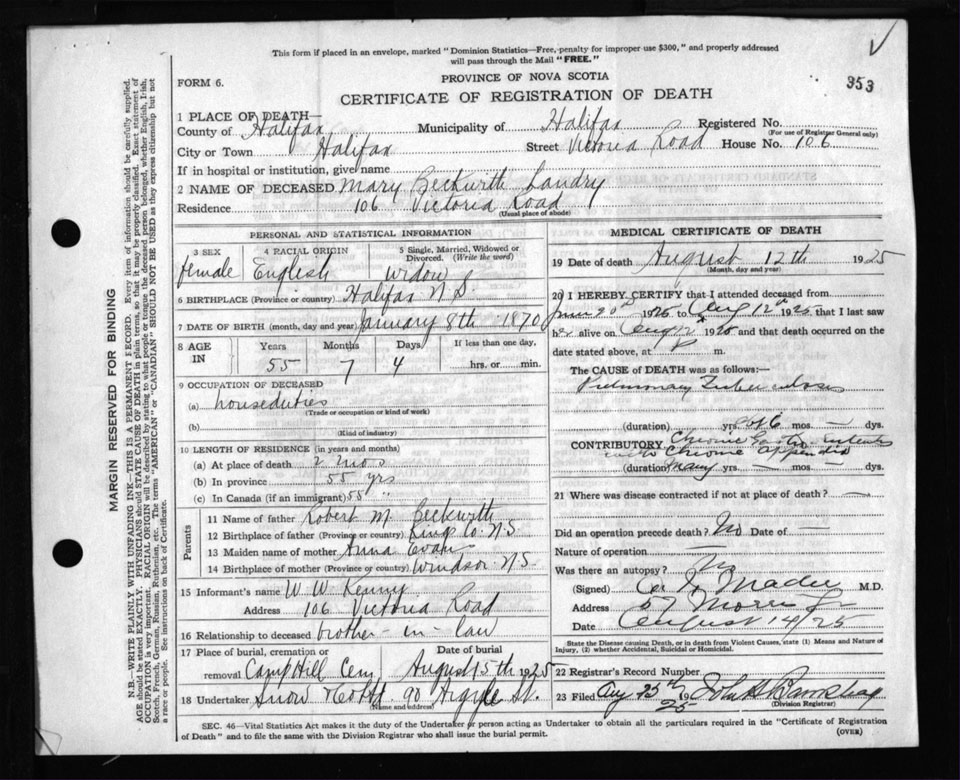 This form if placed in an envelope, marked "Dominion Statistics—Free, penalty for improper use $300," and properly addressed
will pass through the Mail "FREE."
FORM 6.
PROVINCE OF NOVA SCOTIA
353
CERTIFICATE OF REGISTRATION OF DEATH
1 PLACE OF DEATH—
County of Halifax Municipality of Halifax Registered No.
(For use of Registrar General only)
City or Town Halifax Street Victoria Road House No. 106
If in hospital or institution, give name
2 NAME OF DECEASED Mary Beckwith Landry
Residence 106 Victoria Road
(Usual place of abode)
PERSONAL AND STATISTICAL INFORMATION
3 SEX
female
4 RACIAL ORIGIN
English
5 Single, Married, Widowed or
Divorced. (Write the word)
widow
6 BIRTHPLACE (Province or country) Halifax N.S.
7 DATE OF BIRTH (month, day and year) January 8th 1870
8 AGE IN Years Months Days If less than one day,
55 7 4 hrs. or min.
9 OCCUPATION OF DECEASED
(a) houseduties
(Trade or occupation or kind of work)
(b)
(Kind of industry)
10 LENGTH OF RESIDENCE (in years and months)
(a) At place of death 2 mos
(b) In province 55 yrs
(c) In Canada (if an immigrant) 55 "
Parents
11 Name of father Robert M. Beckwith
12 Birthplace of father (Province or country) Kings Co. N.S.
13 Maiden name of mother Anna Evans
14 Birthplace of mother (Province or country) Windsor N.S.
15 Informant's name W W Kenny
Address 106 Victoria Road
16 Relationship to deceased brother-in-law
17 Place of burial, cremation or Date of burial
removal Camp Hill Cem August 15th 1925
18 Undertaker Snow & Co Ltd 90 Argyle St.
(Name and address)
MEDICAL CERTIFICATE OF DEATH
19 Date of death August 12th 1925
(Month, day and year)
20 I HEREBY CERTIFY that I attended deceased from
June 20th 1925 to Aug 12th 1925 that I last saw
her alive on Aug 12 1925 and that death occurred on the
date stated above, at P m.
The CAUSE OF DEATH was as follows:—
Pulmonary Tuberculosis
(duration) yrs. 6 mos — dys.
CONTRIBUTORY Chronic
with Chronic
(duration) Many yrs — mos. — dys.
21 Where was disease contracted if not at place of death? —
Did an operation precede death? No Date of —
Nature of operation —
Was there an autopsy? No
(Signed) Mader M.D.
Address 57 Morris St
Date August 14/25
State the Disease causing Death, or in death from Violent Causes, state (1) Means and Nature of
Injury, (2) whether Accidental, Suicidal or Homicidal.
22 Registrar's Record Number
23 Filed Aug 25
(Division Registrar)
SEC. 46—Vital Statistics Act makes it the duty of the Undertaker or person acting as Undertaker to obtain all the particulars required in the "Certificate of Registration
of Death" and to file the same with the Division Registrar who shall issue the burial permit.
(OVER)
MARGIN RESERVED FOR BINDING
N.B.—WRITE PLAINLY WITH UNFADING INK—THIS IS A PERMANENT RECORD. Every item of information should be carefully supplied.
AGE should be stated EXACTLY. PHYSICIANS should STATE CAUSE OF DEATH in plain terms, so that it may be properly classified. Exact statement of
OCCUPATION is very important. RACIAL ORIGIN will be described by stating to what people or tongue the deceased person belonged, whether English, Irish,
Scotch, French, German, Russian, Ruthenian, etc. The terms "AMERICAN" or "CANADIAN" SHOULD NOT BE USED as they express citizenship but not
a race or people. See instructions on back of Certificate.